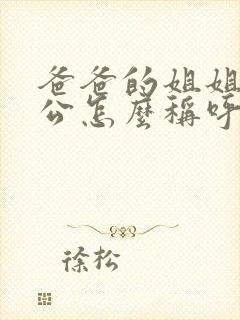 爸爸的姐姐
公怎麼稱呼
徐松